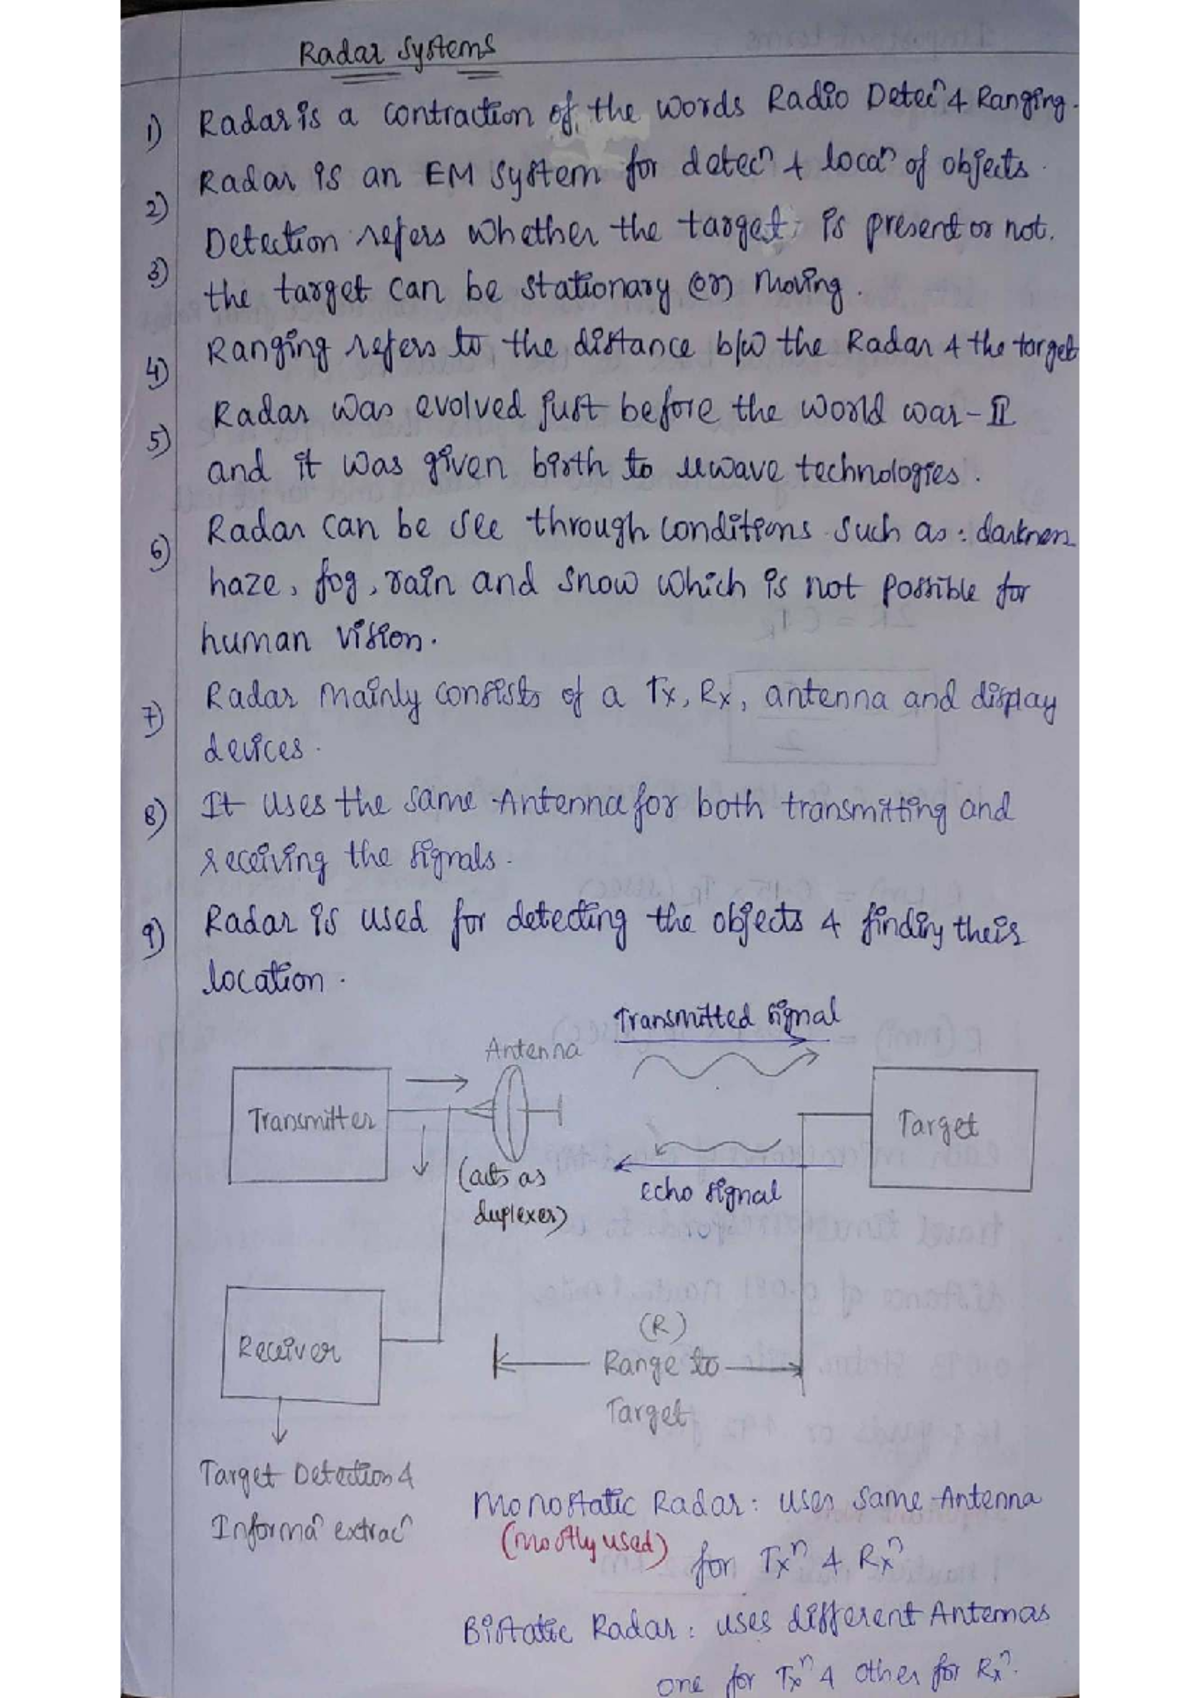 Radar Systems
1) Radar is a contraction of the words Radio Detecⁿ & Ranging.
2) Radar is an EM System for detecⁿ & locaⁿ of objects.
3) Detection refers whether the target is present or not.
the target can be stationary (or) Moving.
4) Ranging refers to the distance b/w the Radar & the target
5) Radar was evolved just before the world war-II
and it was given birth to μwave technologies.
6) Radar can be see through conditions such as: darkness
haze, fog, rain and snow which is not possible for
human vision.
7) Radar mainly consists of a Tx, Rx, antenna and display
devices.
8) It uses the same Antenna for both transmitting and
receiving the signals.
9) Radar is used for detecting the objects & finding their
location.
Transmitted signal
Antenna
Transmitter
Target
(acts as
duplexer)
echo signal
Receiver
(R)
Range to
Target
Target Detection &
Informaⁿ extracⁿ
Monostatic Radar: uses same Antenna
(mostly used) for Txⁿ & Rxⁿ
Bistatic Radar: uses different Antennas
one for Txⁿ & other for Rxⁿ.